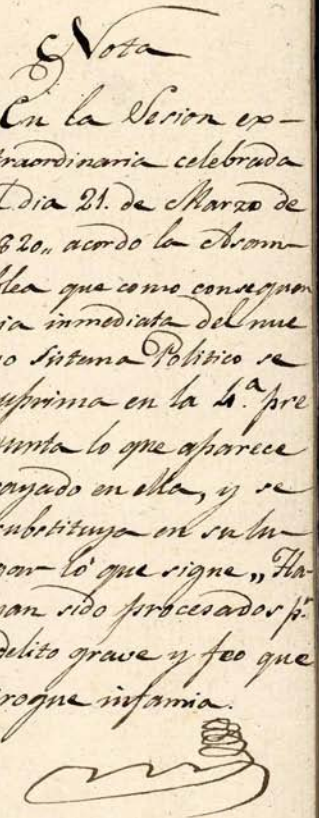 Nota
En la Sesion ex-
traordinaria celebrada
l dia 21. de Marzo de
820,, acordo la Asam-
blea que como consequen
cia inmediata del nue
vo Sistema Politico se
suprima en la 4.ª pre
gunta lo que aparece
rayado en ella, y se
substituya en su lu-
gar lo que signe „Ha-
yan sido procesados p.r
delito grave y feo que
irrogue infamia.